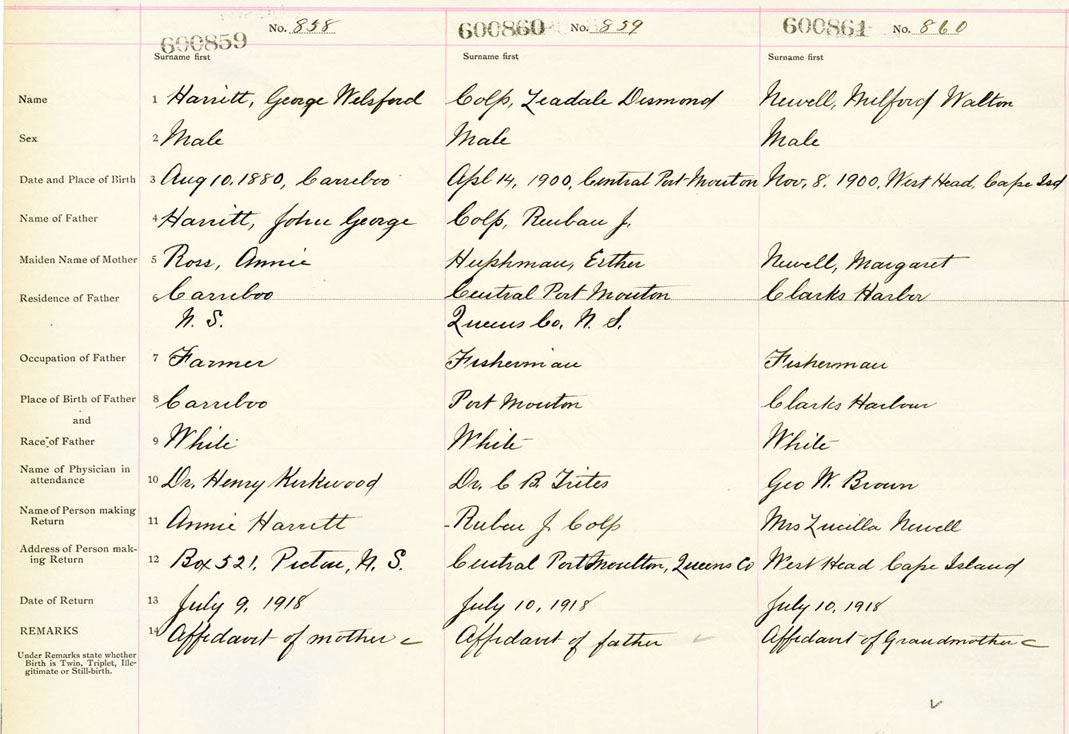 600859 No. 858 600860 No. 859 600861 No. 860
Surname first Surname first Surname first
Name 1 Harritt, George Welsford Colp, Leadale Desmond Newell, Milford Walton
Sex 2 Male Male Male
Date and Place of Birth 3 Aug 10, 1880, Carriboo Apl 14, 1900, Central Port Mouton Nov, 8. 1900, West Head, Cape Isd
Name of Father 4 Harritt, John George Colp, Reuban J.
Maiden Name of Mother 5 Ross, Annie Huphman, Esther Newell, Margaret
Residence of Father 6 Carriboo Central Port Mouton Clarks Harbor
N. S. Queens Co, N. S.
Occupation of Father 7 Farmer Fisherman Fisherman
Place of Birth of Father 8 Carriboo Port Mouton Clarks Harbour
and
Race of Father 9 White White White
Name of Physician in
attendance 10 Dr. Henry Kirkwood Dr. C B. Trites Geo W. Brown
Name of Person making
Return 11 Annie Harritt Ruben J Colp Mrs Lucilla Newell
Address of Person mak-
ing Return 12 Box 521, Pictou, N. S. Central Port Moulton, Queens Co West Head Cape Island
Date of Return 13 July 9, 1918 July 10, 1918 July 10, 1918
REMARKS 14 Affidavit of mother Affidavit of father Affidavit of Grandmother
Under Remarks state whether
Birth is Twin, Triplet, Ille-
gitimate or Still-birth.